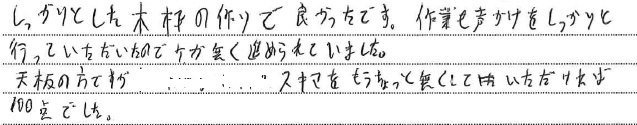 しっかりとした木枠の作りで良かったです。作業も声かけをしっかりと
行っていただいたのでケガ無く進められていました。
天板の方ですが ‥‥‥‥ スキマをもうちょっと無くして いただければ
100点でした。